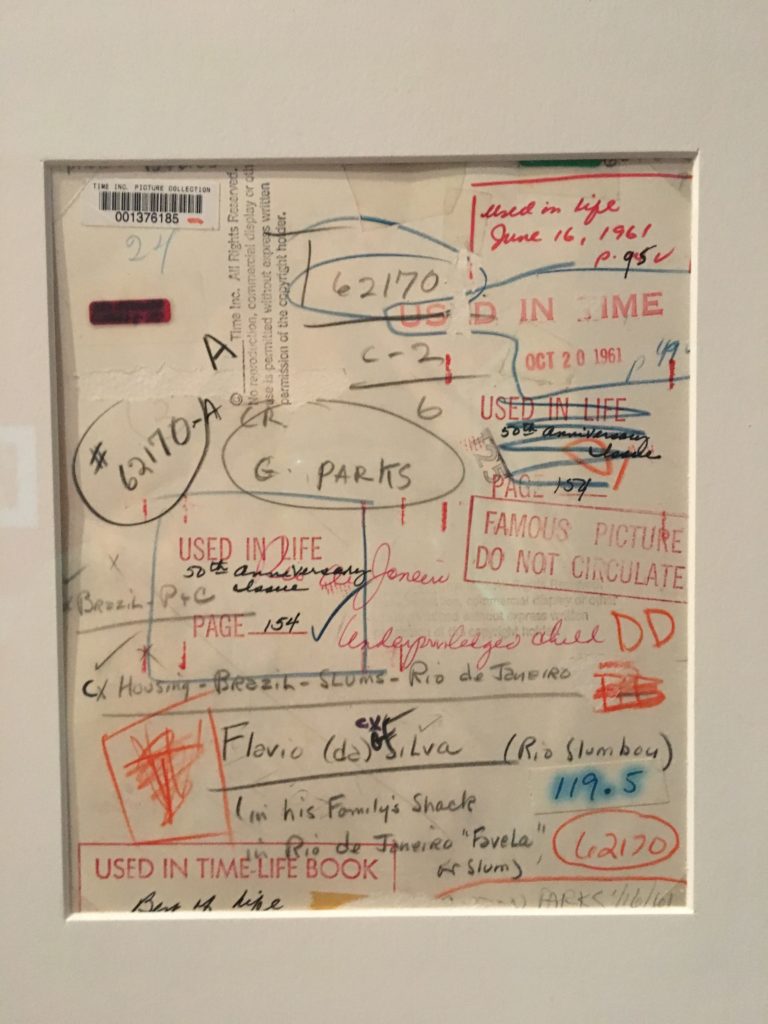 TIME INC. PICTURE COLLECTION
001376185
24
© Time Inc. All Rights Reserved.
No reproduction, commercial display or
use is permitted without express written
permission of the copyright holder.
Used in Life
June 16, 1961
p. 95
62170
USED IN TIME
OCT 20 1961
p 49
A
C-2
6
CR
# 62170-A
G. PARKS
USED IN LIFE
50th anniversary
issue
PAGE 154
25
FAMOUS PICTURE
DO NOT CIRCULATE
USED IN LIFE
50th anniversary
issue
PAGE 154
Rio de Janeiro
Underprivileged child
DD
BRAZIL - P+C
CX HOUSING - BRAZIL - SLUMS - RIO de JANEIRO
Flavio (da) SILVA (Rio Slumboy)
cx
119.5
(in his Family's Shack
in Rio de Janeiro "Favela"
or Slum)
62170
USED IN TIME-LIFE BOOK
Best of Life
PARKS